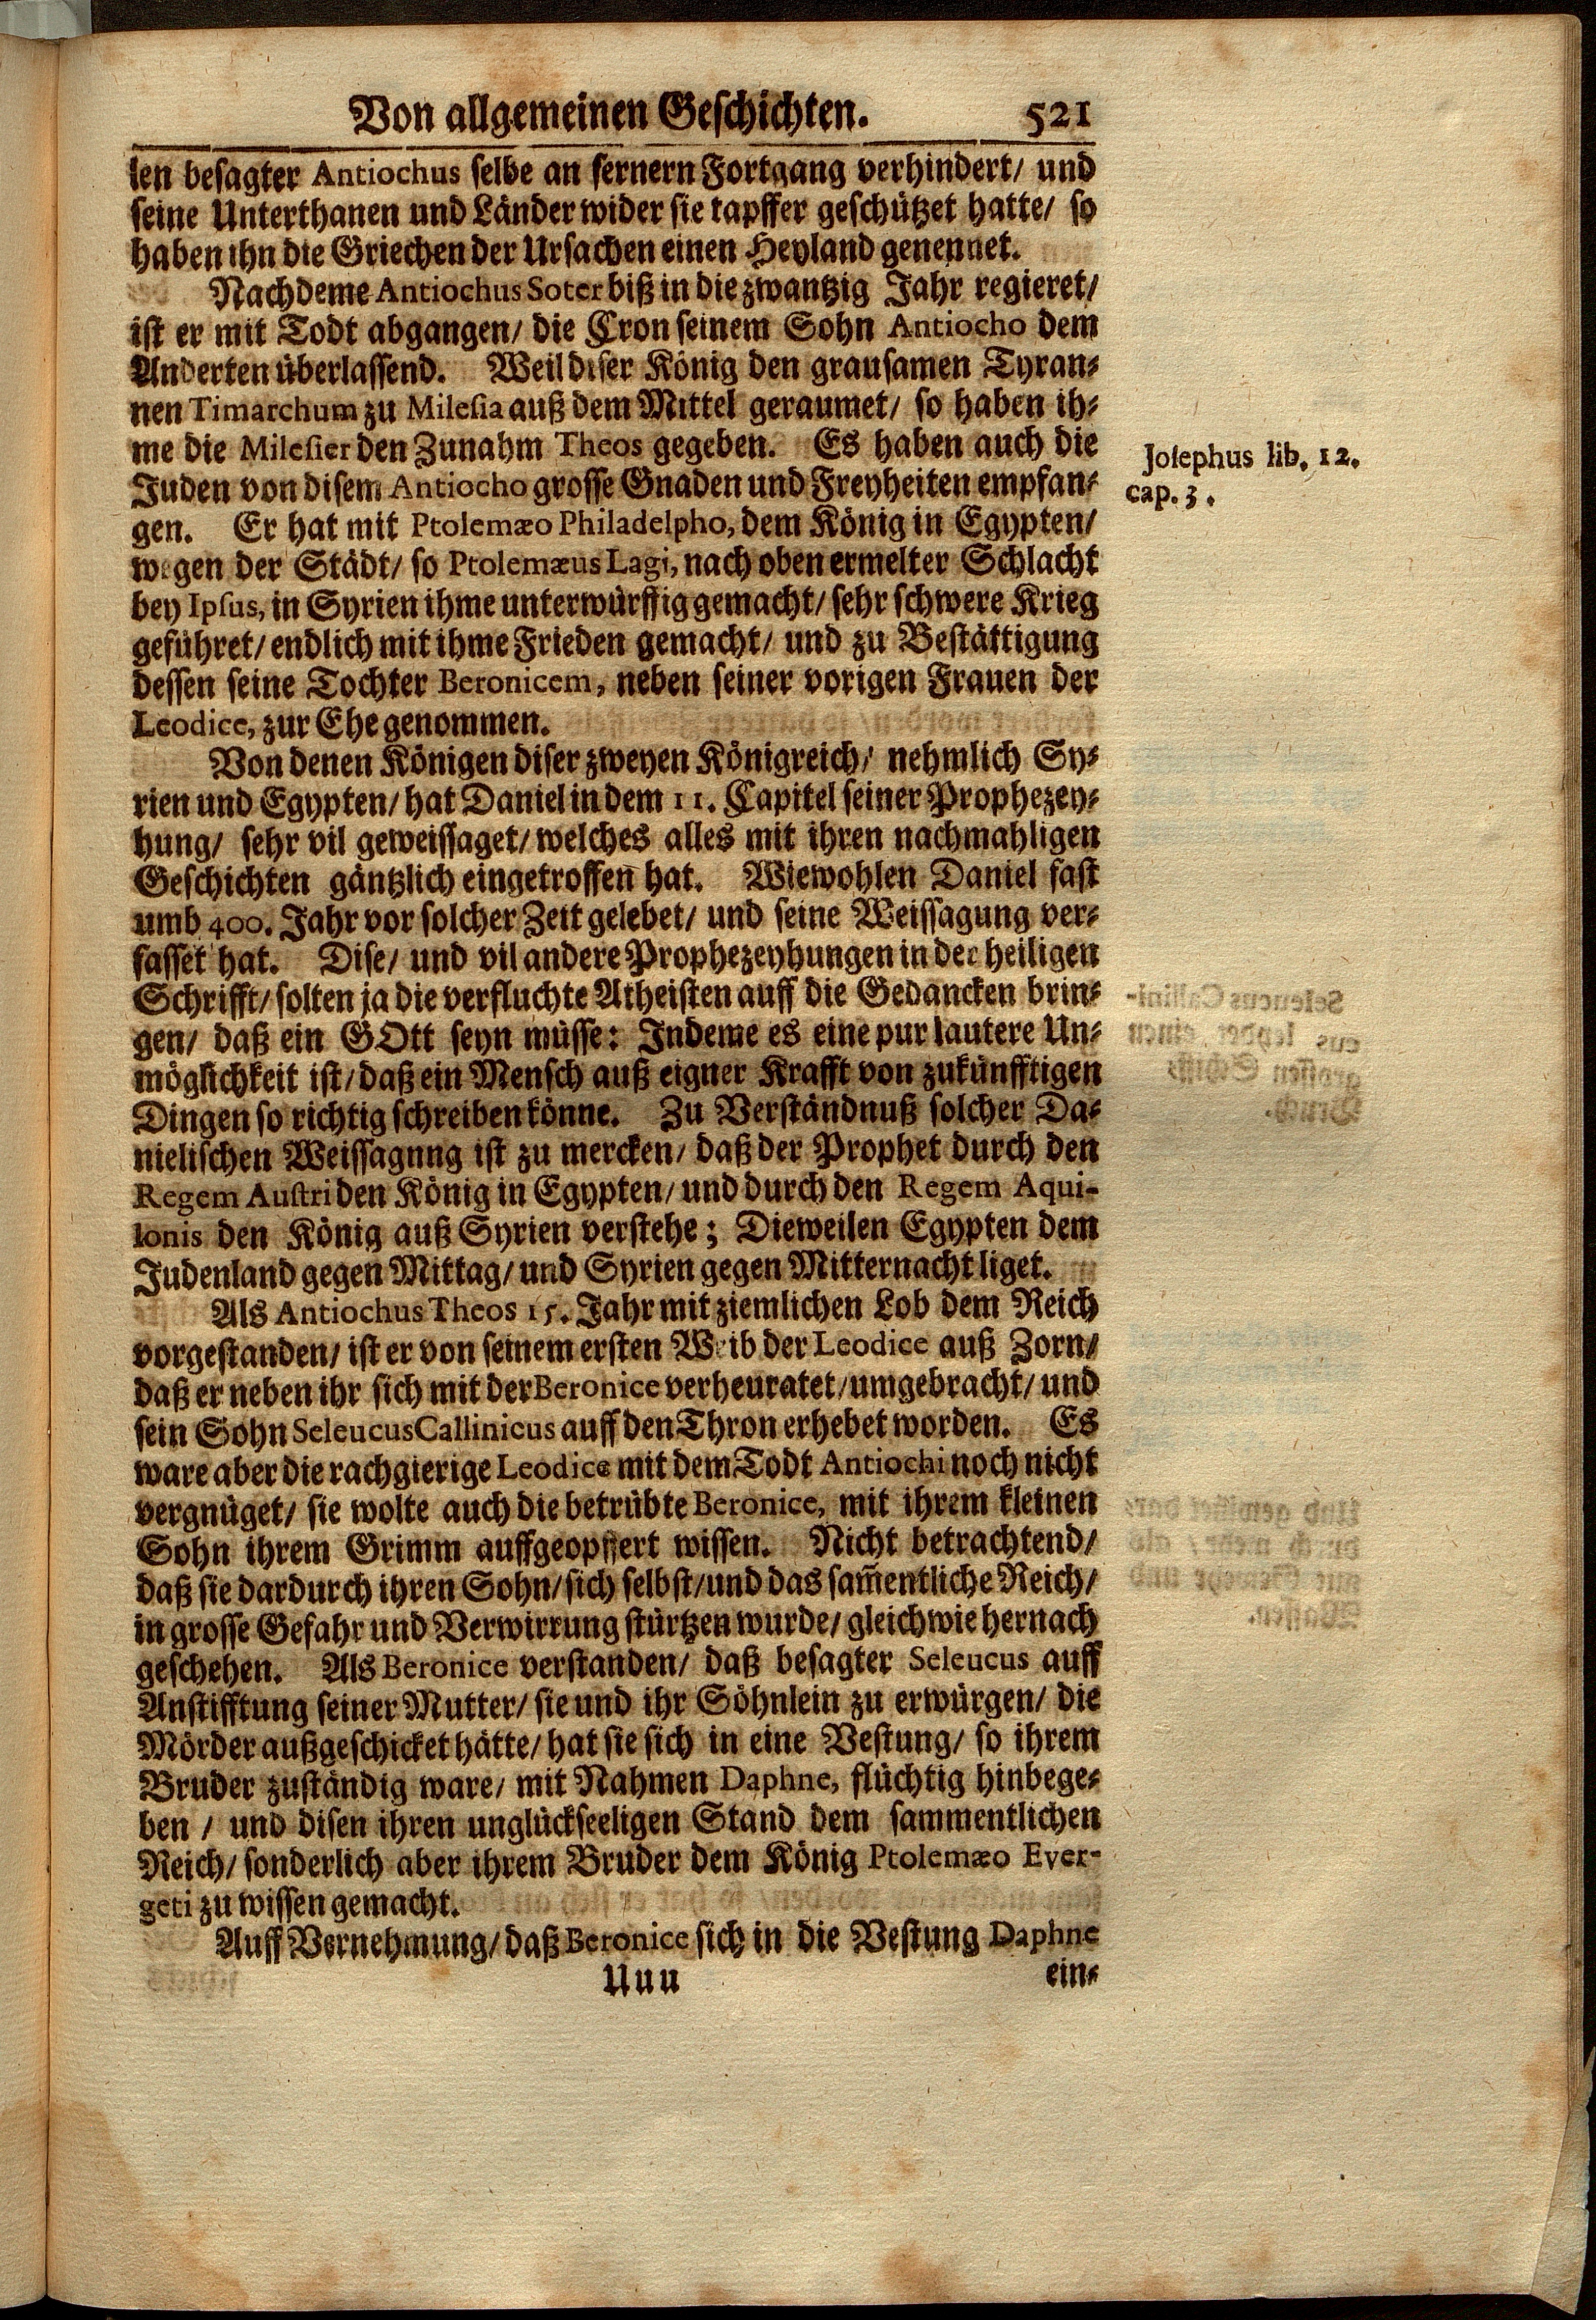 Von allgemeinen Geschichten. 521
len besagter Antiochus selbe an fernern Fortgang verhindert/ und
seine Unterthanen und Länder wider sie tapffer geschützet hatte/ so
haben ihn die Griechen der Ursachen einen Heyland genennet.
Nachdeme Antiochus Soter biß in die zwantzig Jahr regieret/
ist er mit Todt abgangen/ die Cron seinem Sohn Antiocho dem
Anderten überlassend. Weil diser König den grausamen Tyran-
nen Timarchum zu Milesia auß dem Mittel geraumet/ so haben ih-
me die Milesier den Zunahm Theos gegeben. Es haben auch die
Juden von disem Antiocho grosse Gnaden und Freyheiten empfan-
gen. Er hat mit Ptolemæo Philadelpho, dem König in Egypten/
wegen der Städt/ so Ptolemæus Lagi, nach oben ermelter Schlacht
bey Ipsus, in Syrien ihme unterwürffig gemacht/ sehr schwere Krieg
geführet/ endlich mit ihme Frieden gemacht/ und zu Bestättigung
dessen seine Tochter Beronicem, neben seiner vorigen Frauen der
Leodice, zur Ehe genommen.
Josephus lib. 12.
cap. 3.
Von denen Königen diser zweyen Königreich/ nehmlich Sy-
rien und Egypten/ hat Daniel in dem 11. Capitel seiner Prophezey-
hung/ sehr vil geweissaget/ welches alles mit ihren nachmahligen
Geschichten gäntzlich eingetroffen hat. Wiewohlen Daniel fast
umb 400. Jahr vor solcher Zeit gelebet/ und seine Weissagung ver-
fasset hat. Dise/ und vil andere Prophezeyhungen in der heiligen
Schrifft/ solten ja die verfluchte Atheisten auff die Gedancken brin-
gen/ daß ein GOtt seyn müsse: Indeme es eine pur lautere Un-
möglichkeit ist/ daß ein Mensch auß eigner Krafft von zukünfftigen
Dingen so richtig schreiben könne. Zu Verständnuß solcher Da-
nielischen Weissagung ist zu mercken/ daß der Prophet durch den
Regem Austri den König in Egypten/ und durch den Regem Aqui-
lonis den König auß Syrien verstehe; Dieweilen Egypten dem
Judenland gegen Mittag/ und Syrien gegen Mitternacht liget.
Als Antiochus Theos 15. Jahr mit ziemlichen Lob dem Reich
vorgestanden/ ist er von seinem ersten Weib der Leodice auß Zorn/
daß er neben ihr sich mit der Beronice verheuratet/ umgebracht/ und
sein Sohn Seleucus Callinicus auff den Thron erhebet worden. Es
ware aber die rachgierige Leodice mit dem Todt Antiochi noch nicht
vergnüget/ sie wolte auch die betrübte Beronice, mit ihrem kleinen
Sohn ihrem Grimm auffgeopffert wissen. Nicht betrachtend/
daß sie dardurch ihren Sohn/ sich selbst/ und das sam̄entliche Reich/
in grosse Gefahr und Verwirrung stürtzen wurde/ gleichwie hernach
geschehen. Als Beronice verstanden/ daß besagter Seleucus auff
Anstifftung seiner Mutter/ sie und ihr Söhnlein zu erwürgen/ die
Mörder außgeschicket hätte/ hat sie sich in eine Vestung/ so ihrem
Bruder zuständig ware/ mit Nahmen Daphne, flüchtig hinbege-
ben / und disen ihren unglückseeligen Stand dem sammentlichen
Reich/ sonderlich aber ihrem Bruder dem König Ptolemæo Ever-
geti zu wissen gemacht.
Auff Vernehmung/ daß Beronice sich in die Vestung Daphne
Uuu ein-